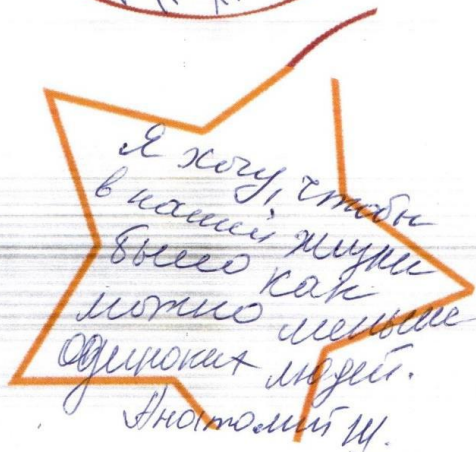 Я хочу, чтобы
в нашей жизни
было как
можно меньше
одиноких людей.
Анатолий Ж.